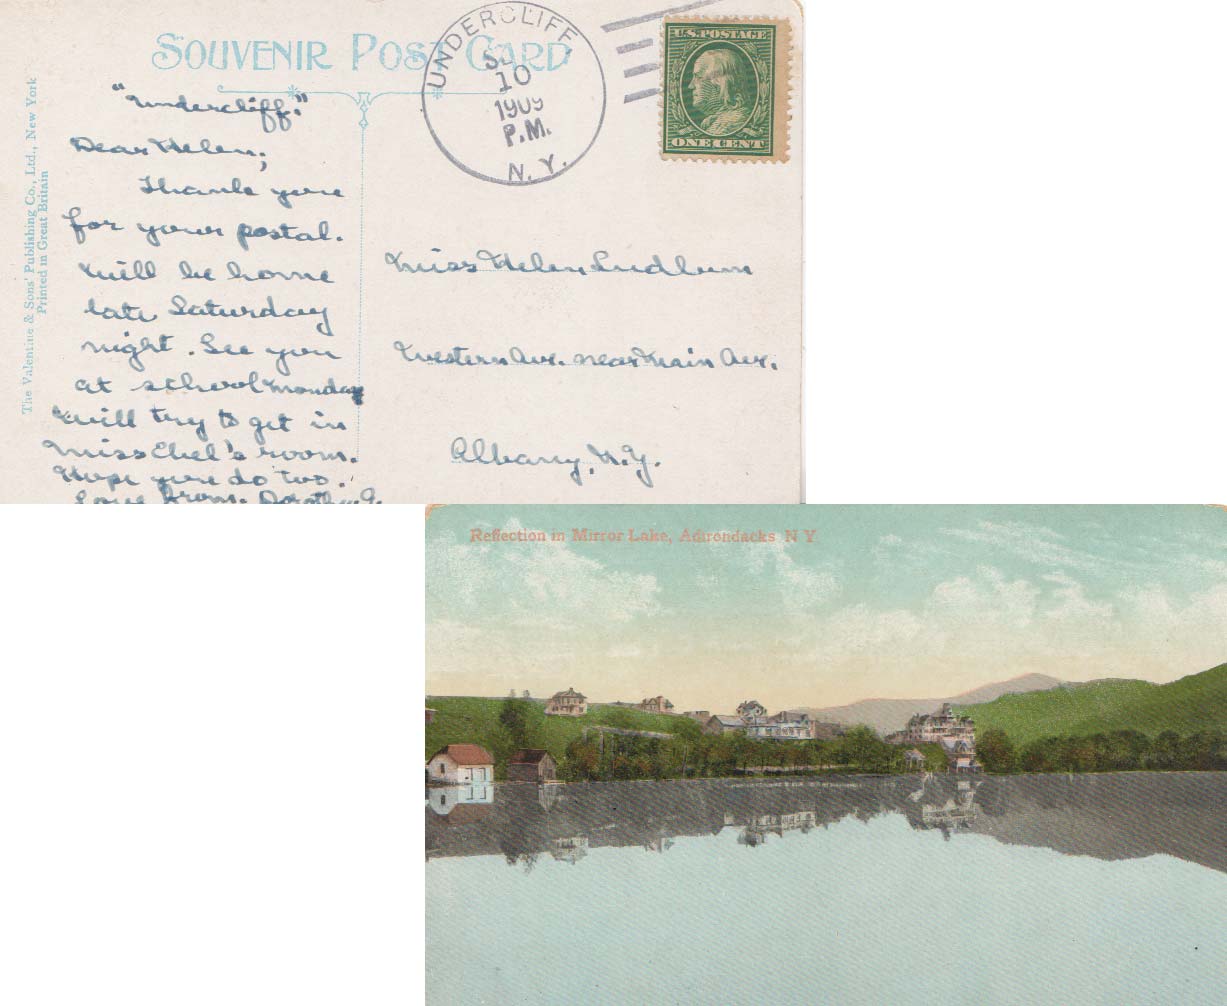 SOUVENIR POST CARD
UNDERCLIFF,
10
1909
P.M.
N.Y.
U.S. POSTAGE
ONE CENT
The Valentine & Sons' Publishing Co., Ltd., New York
Printed in Great Britain
"Undercliff."
Dear Helen;
Thank you
for your postal.
Will be home
late Saturday
night. See you
at school Monday
Will try to get in
Miss
room.
Hope you do too.
Love from. Dorothy
Miss Helen Ludlum
Western Ave. near Main Ave.
Albany, N.Y.
Reflection in Mirror Lake, Adirondacks N Y